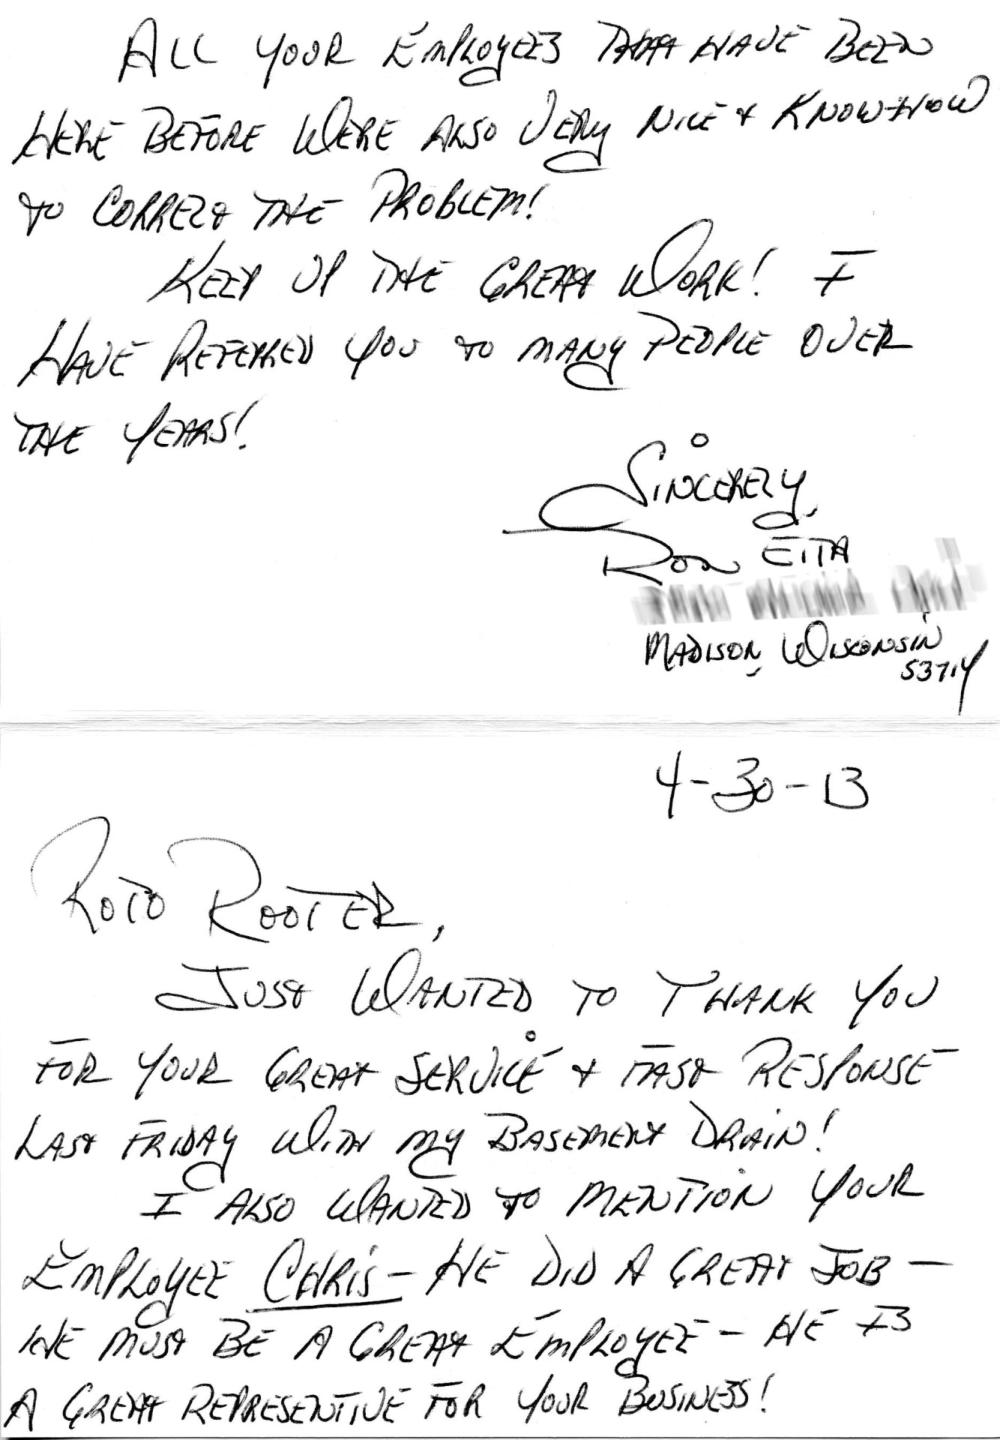 ALL YOUR EMPLOYEES THAT HAVE BEEN
HERE BEFORE WERE ALSO VERY NICE & KNOW-HOW
TO CORRECT THE PROBLEM!
KEEP UP THE GREAT WORK! I
HAVE REFERRED YOU TO MANY PEOPLE OVER
THE YEARS!
SINCERELY,
RON EITA
MADISON, WISCONSIN
53714
4-30-13
ROTO ROOTER,
JUST WANTED TO THANK YOU
FOR YOUR GREAT SERVICE & FAST RESPONSE
LAST FRIDAY WITH MY BASEMENT DRAIN!
I ALSO WANTED TO MENTION YOUR
EMPLOYEE CHRIS - HE DID A GREAT JOB -
HE MUST BE A GREAT EMPLOYEE - HE IS
A GREAT REPRESENTIVE FOR YOUR BUSINESS!